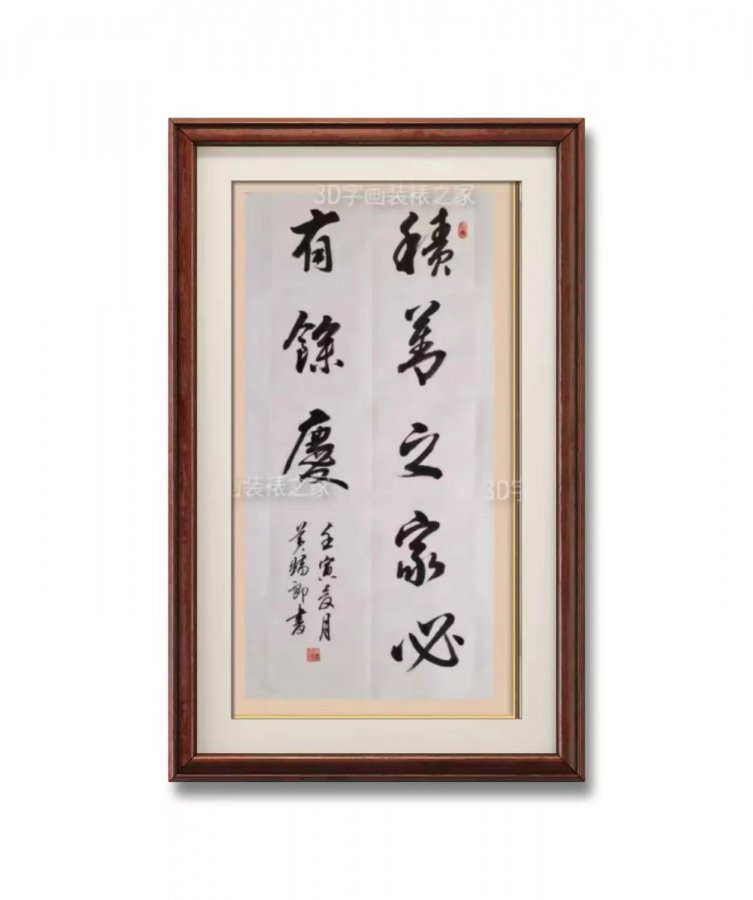 3D字画装裱之家
積善之家必
有餘慶
壬寅夏月
黄郎書
画装裱之家
3D字